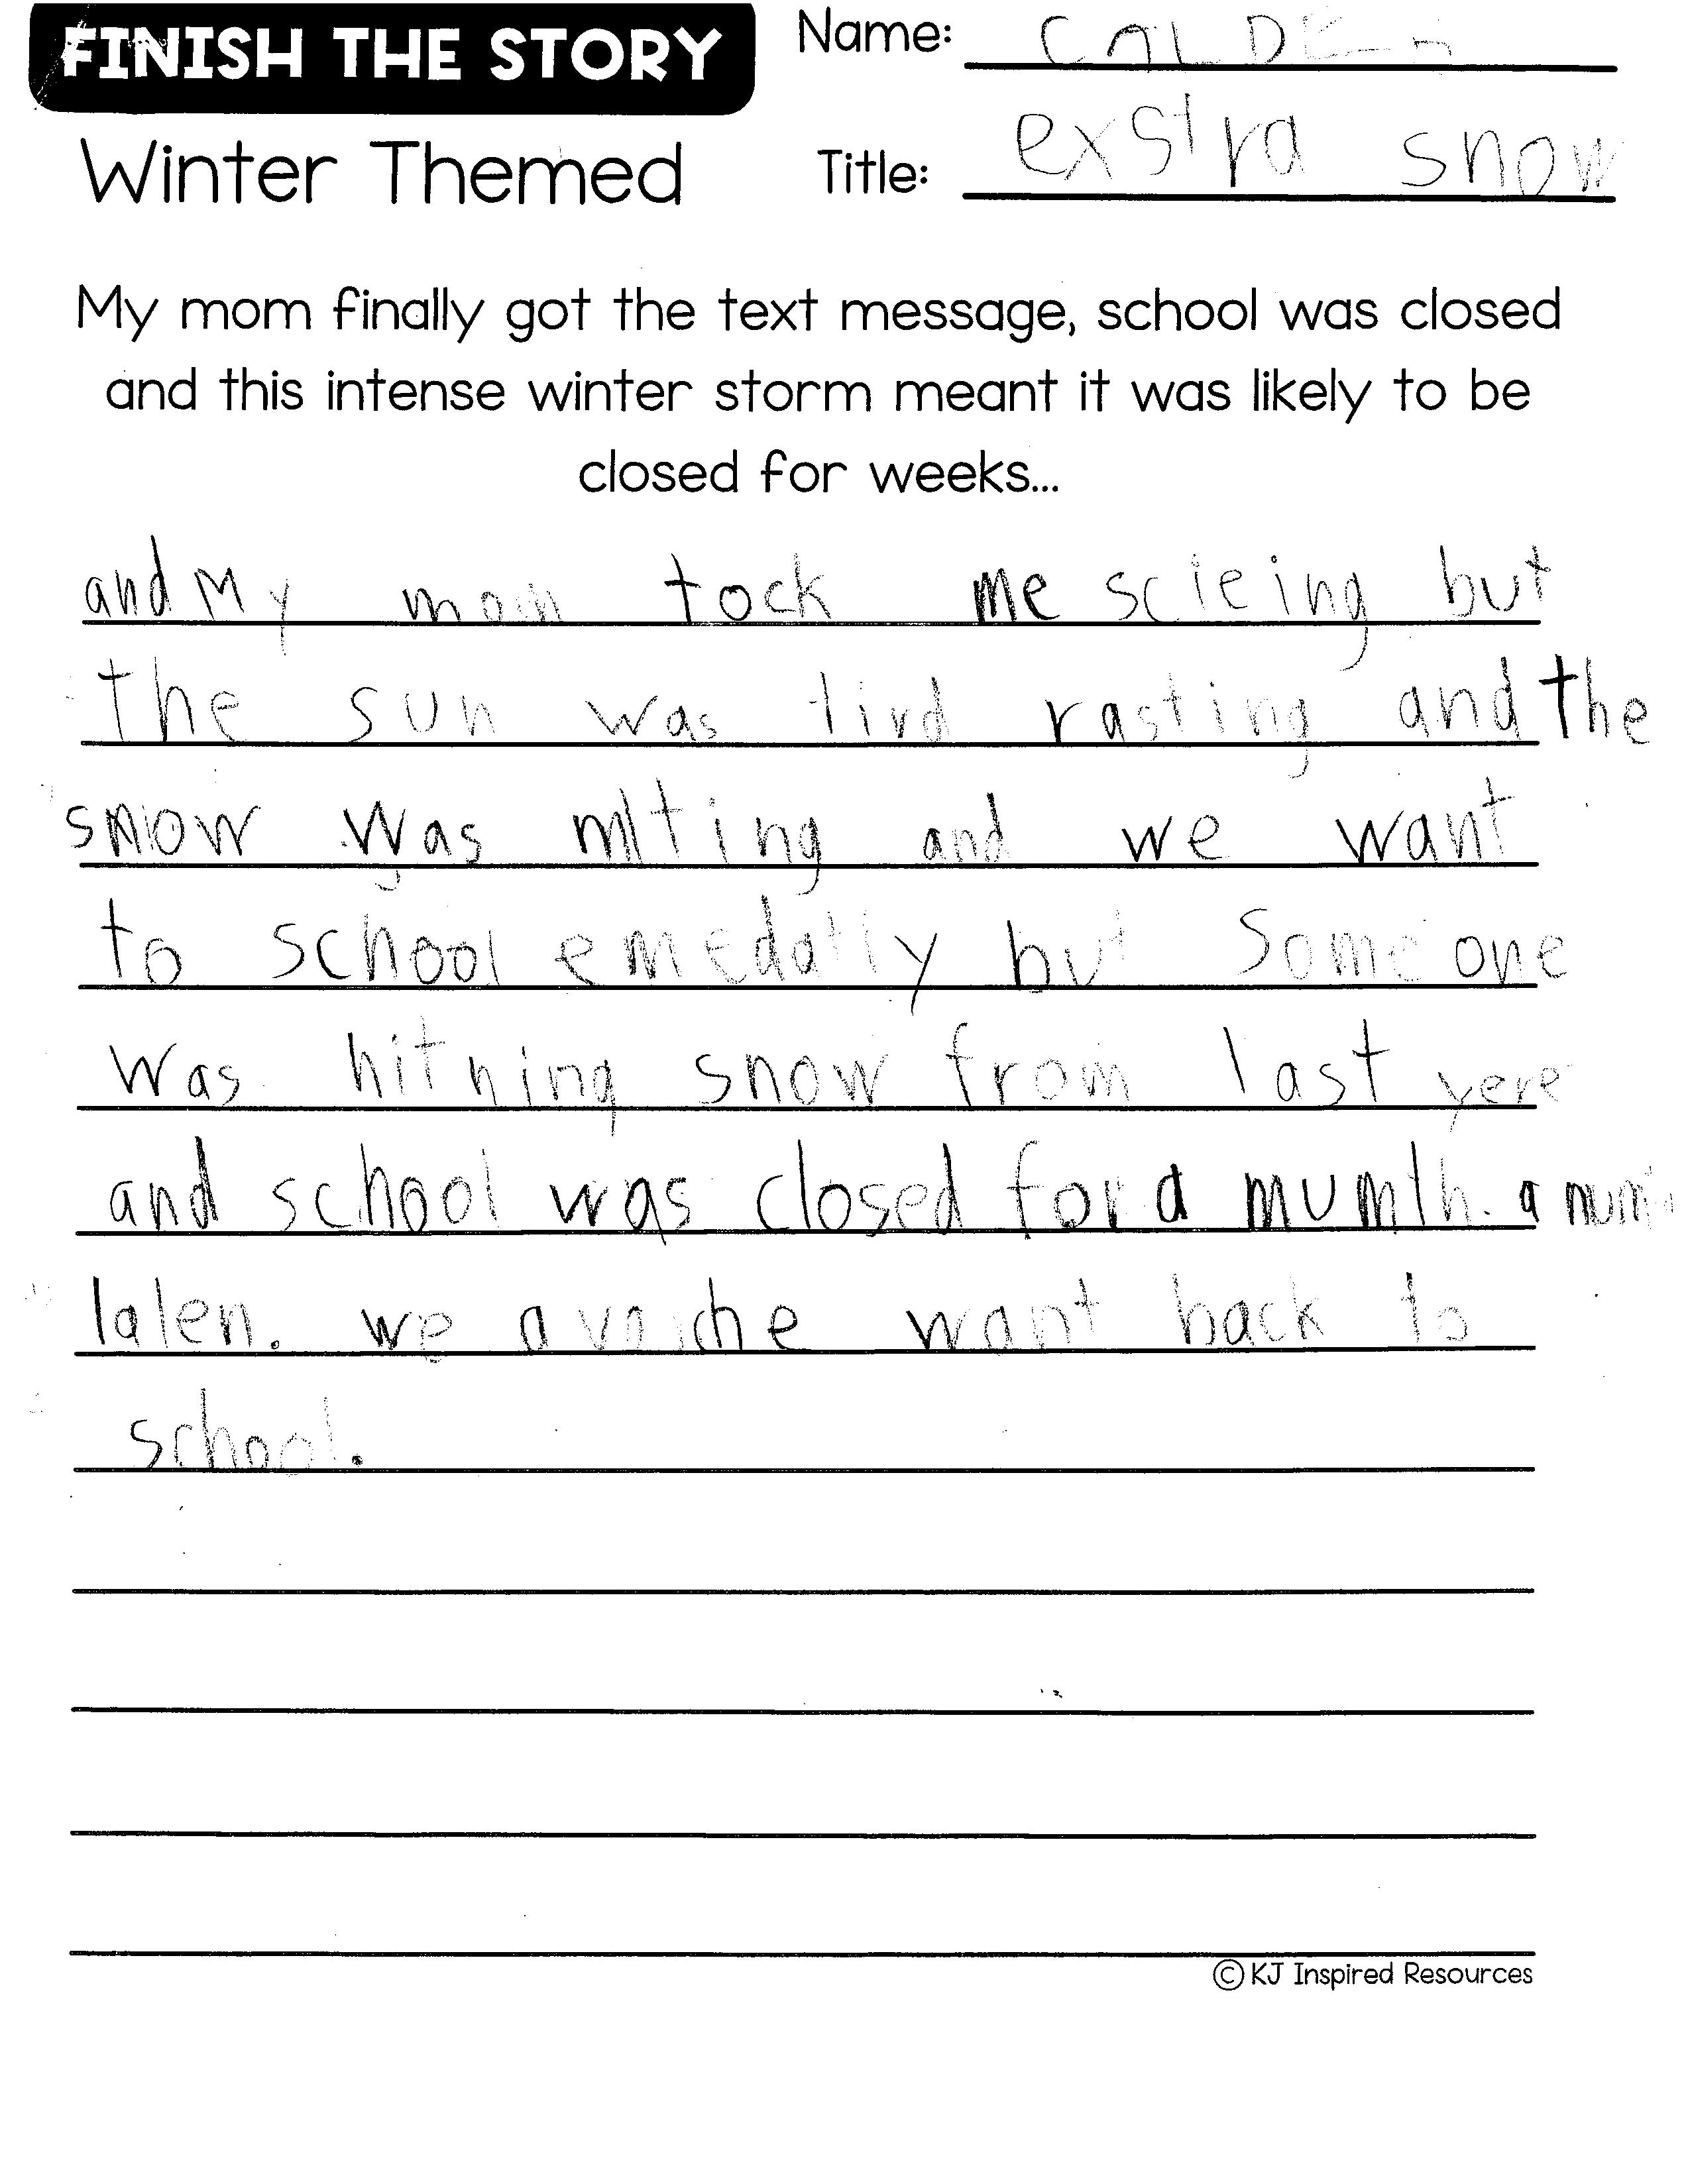 FINISH THE STORY
Name: CALDE
Winter Themed
Title: exstra snow
My mom finally got the text message, school was closed
and this intense winter storm meant it was likely to be
closed for weeks...
and My mom tock me scieing but
the sun was tird rasting and the
snow was mlting and we want
to school emedatly but some one
was hitning snow from last yere
and school was closed for a mumth. a mum
laten. we want back to
school.
© KJ Inspired Resources